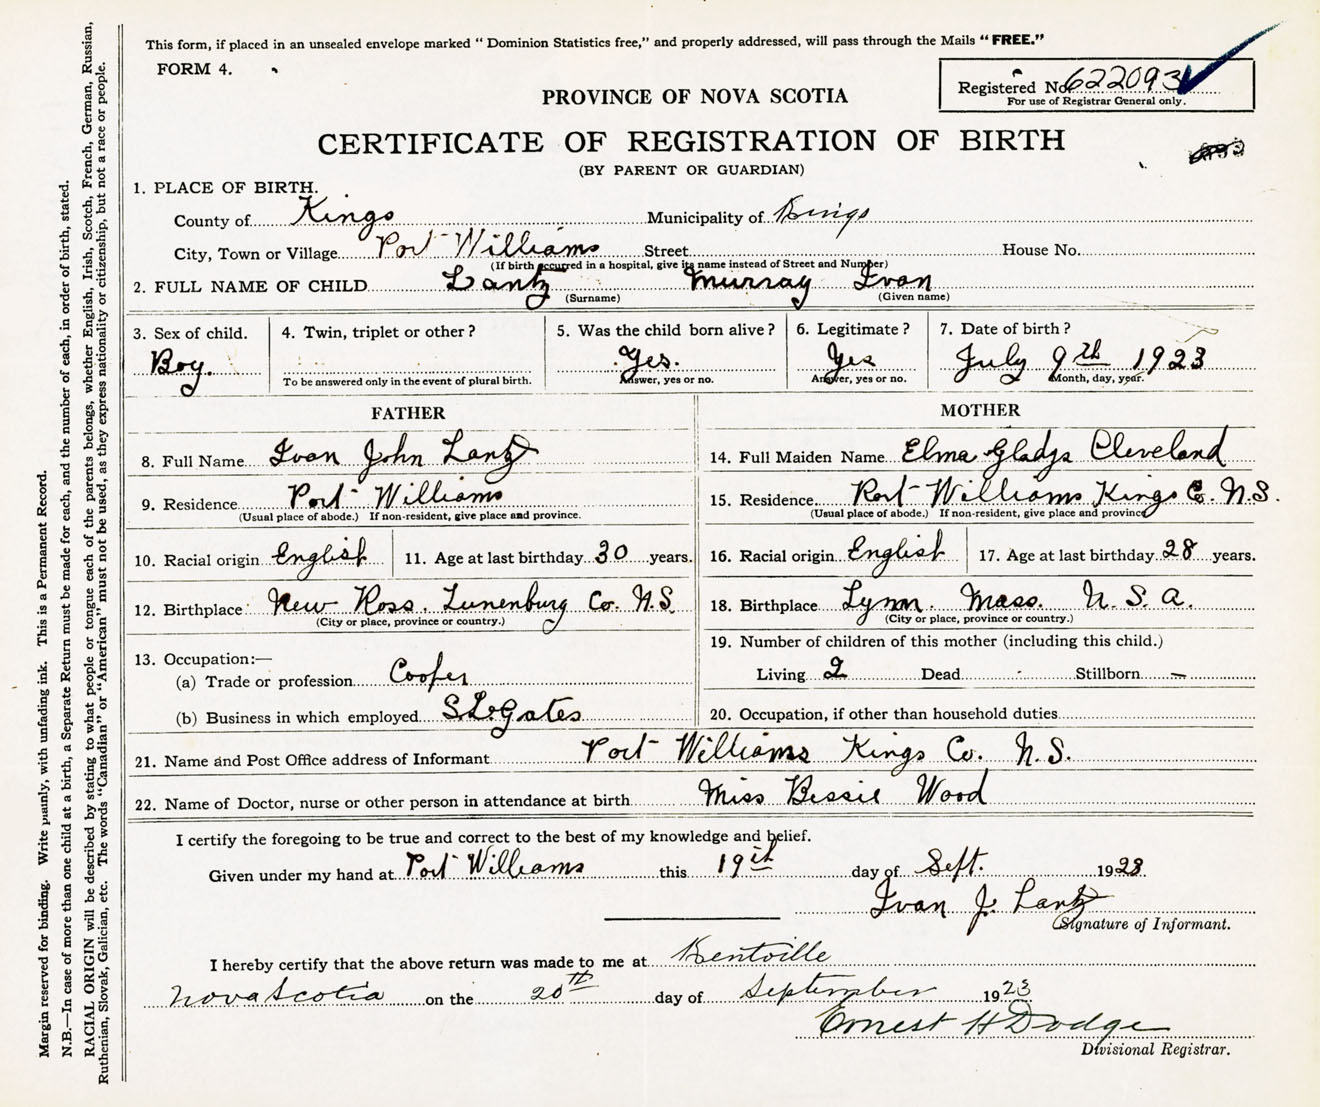 This form, if placed in an unsealed envelope marked “ Dominion Statistics free,” and properly addressed, will pass through the Mails “ FREE.”
FORM 4.
Registered No. 622093
For use of Registrar General only.
PROVINCE OF NOVA SCOTIA
CERTIFICATE OF REGISTRATION OF BIRTH
(BY PARENT OR GUARDIAN)
1. PLACE OF BIRTH.
County of Kings Municipality of Kings
City, Town or Village Port Williams Street House No.
(If birth occurred in a hospital, give its name instead of Street and Number)
2. FULL NAME OF CHILD Lantz Murray Ivan
(Surname) (Given name)
3. Sex of child. 4. Twin, triplet or other? 5. Was the child born alive? 6. Legitimate? 7. Date of birth?
Boy. Yes. Yes July 9th 1923
To be answered only in the event of plural birth. Answer, yes or no. Answer, yes or no. Month, day, year.
FATHER
8. Full Name Ivan John Lantz
9. Residence Port Williams
(Usual place of abode.) If non-resident, give place and province.
10. Racial origin English 11. Age at last birthday 30 years.
12. Birthplace New Ross. Lunenburg Co. N.S.
(City or place, province or country.)
13. Occupation:—
(a) Trade or profession Cooper
(b) Business in which employed S.L. Gates
MOTHER
14. Full Maiden Name Elma Gladys Cleveland
15. Residence Port Williams Kings Co. N.S.
(Usual place of abode.) If non-resident, give place and province
16. Racial origin English 17. Age at last birthday 28 years.
18. Birthplace Lynn. Mass. U. S. A.
(City or place, province or country.)
19. Number of children of this mother (including this child.)
Living 2 Dead - Stillborn —
20. Occupation, if other than household duties
21. Name and Post Office address of Informant Port Williams Kings Co. N.S.
22. Name of Doctor, nurse or other person in attendance at birth Miss Bessie Wood
I certify the foregoing to be true and correct to the best of my knowledge and belief.
Given under my hand at Port Williams this 19th day of Sept. 1923
Ivan J. Lantz
Signature of Informant.
I hereby certify that the above return was made to me at Kentville
Nova Scotia on the 20th day of September 1923
Ernest H Dodge
Divisional Registrar.
Margin reserved for binding. Write plainly, with unfading ink. This is a Permanent Record.
N.B.—In case of more than one child at a birth, a Separate Return must be made for each, and the number of each, in order of birth, stated.
RACIAL ORIGIN will be described by stating to what people or tongue each of the parents belongs, whether English, Irish, Scotch, French, German, Russian,
Ruthenian, Slovak, Galician, etc. The words “Canadian” or “American” must not be used, as they express nationality or citizenship, but not a race or people.